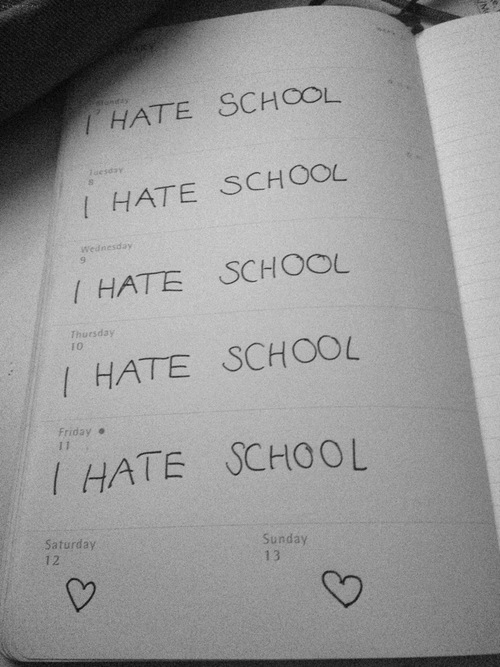 Monday
I HATE SCHOOL
Tuesday
8
I HATE SCHOOL
Wednesday
9
I HATE SCHOOL
Thursday
10
I HATE SCHOOL
Friday
11
I HATE SCHOOL
Saturday
12
Sunday
13